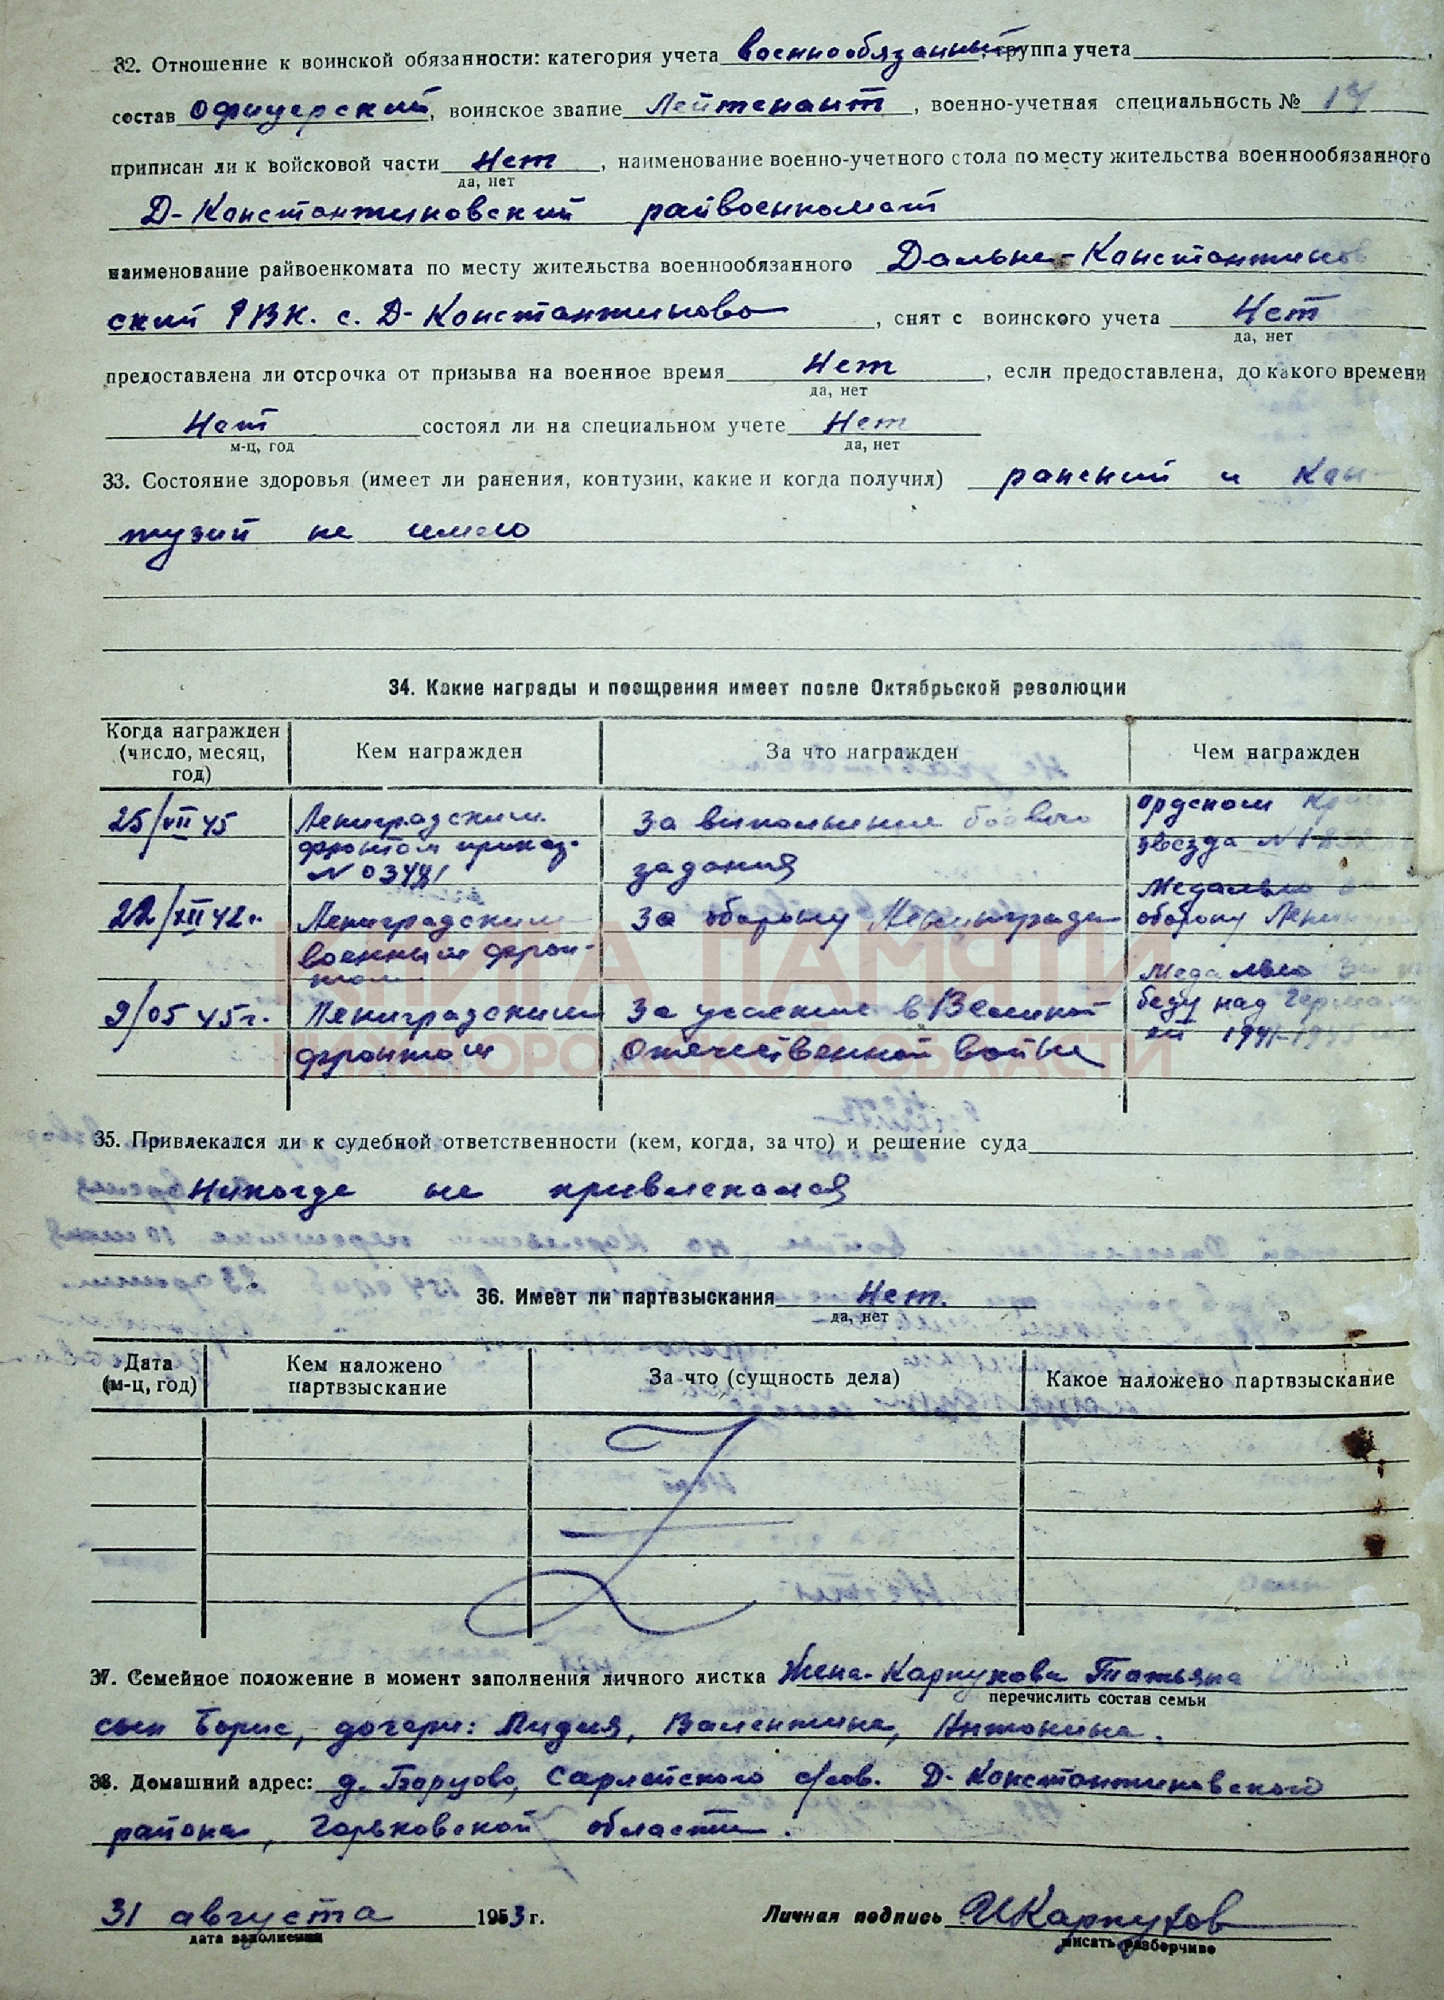 32. Отношение к воинской обязанности: категория учета военнообязанный, группа учета
состав офицерский, воинское звание Лейтенант, военно-учетная специальность №
приписан ли к войсковой части Нет, наименование военно-учетного стола по месту жительства военнообязанного
да, нет
Д-Константиновский райвоенкомат
наименование райвоенкомата по месту жительства военнообязанного Дальне-Константинов
ский РВК. с. Д-Константиново, снят с воинского учета Нет
да, нет
предоставлена ли отсрочка от призыва на военное время Нет, если предоставлена, до какого времени
да, нет
Нет состоял ли на специальном учете Нет
м-ц, год да, нет
33. Состояние здоровья (имеет ли ранения, контузии, какие и когда получил) ранений и кон-
тузий не имею
34. Какие награды и поощрения имеет после Октябрьской революции
Когда награжден (число, месяц, год) Кем награжден За что награжден Чем награжден
25/VII 45 Ленинградским фронтом приказ. За выполнение боевого задания орденом звезда
22/XII 42г. Ленинградским военным фронтом За оборону Ленинграда Медалью оборону
9/05 45г. Ленинградским фронтом За участие в Великой Отечественной войне Медалью беду над 1941-1945
КНИГА ПАМЯТИ
НИЖЕГОРОДСКОЙ ОБЛАСТИ
35. Привлекался ли к судебной ответственности (кем, когда, за что) и решение суда
Никогда не привлекался
36. Имеет ли партвзыскания Нет.
да, нет
Дата (м-ц, год) Кем наложено партвзыскание За что (сущность дела) Какое наложено партвзыскание
37. Семейное положение в момент заполнения личного листка Жена-Карпухова Татьяна
перечислить состав семьи
сын Борис, дочери: Лидия, Валентина, Антонина.
38. Домашний адрес: д. Борцово, Сарлейского с/сов. Д-Константиновского
района, Горьковской области.
31 августа 1953 г. Личная подпись ИКарпухов
дата заполнения писать разборчиво